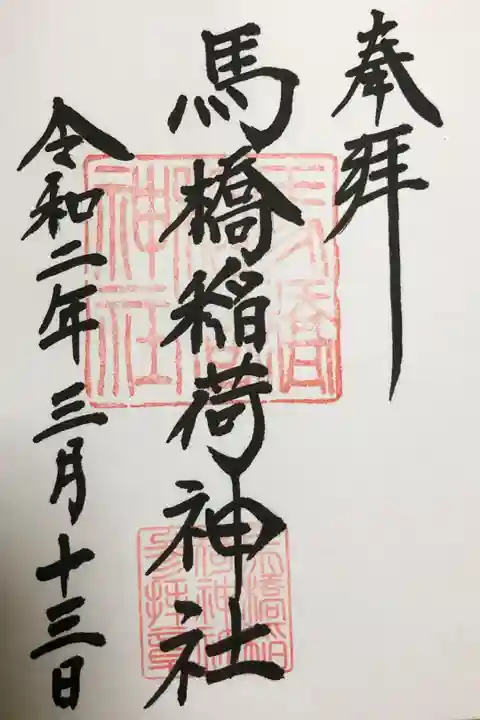 奉拝
馬橋稲荷神社
令和二年三月十三日